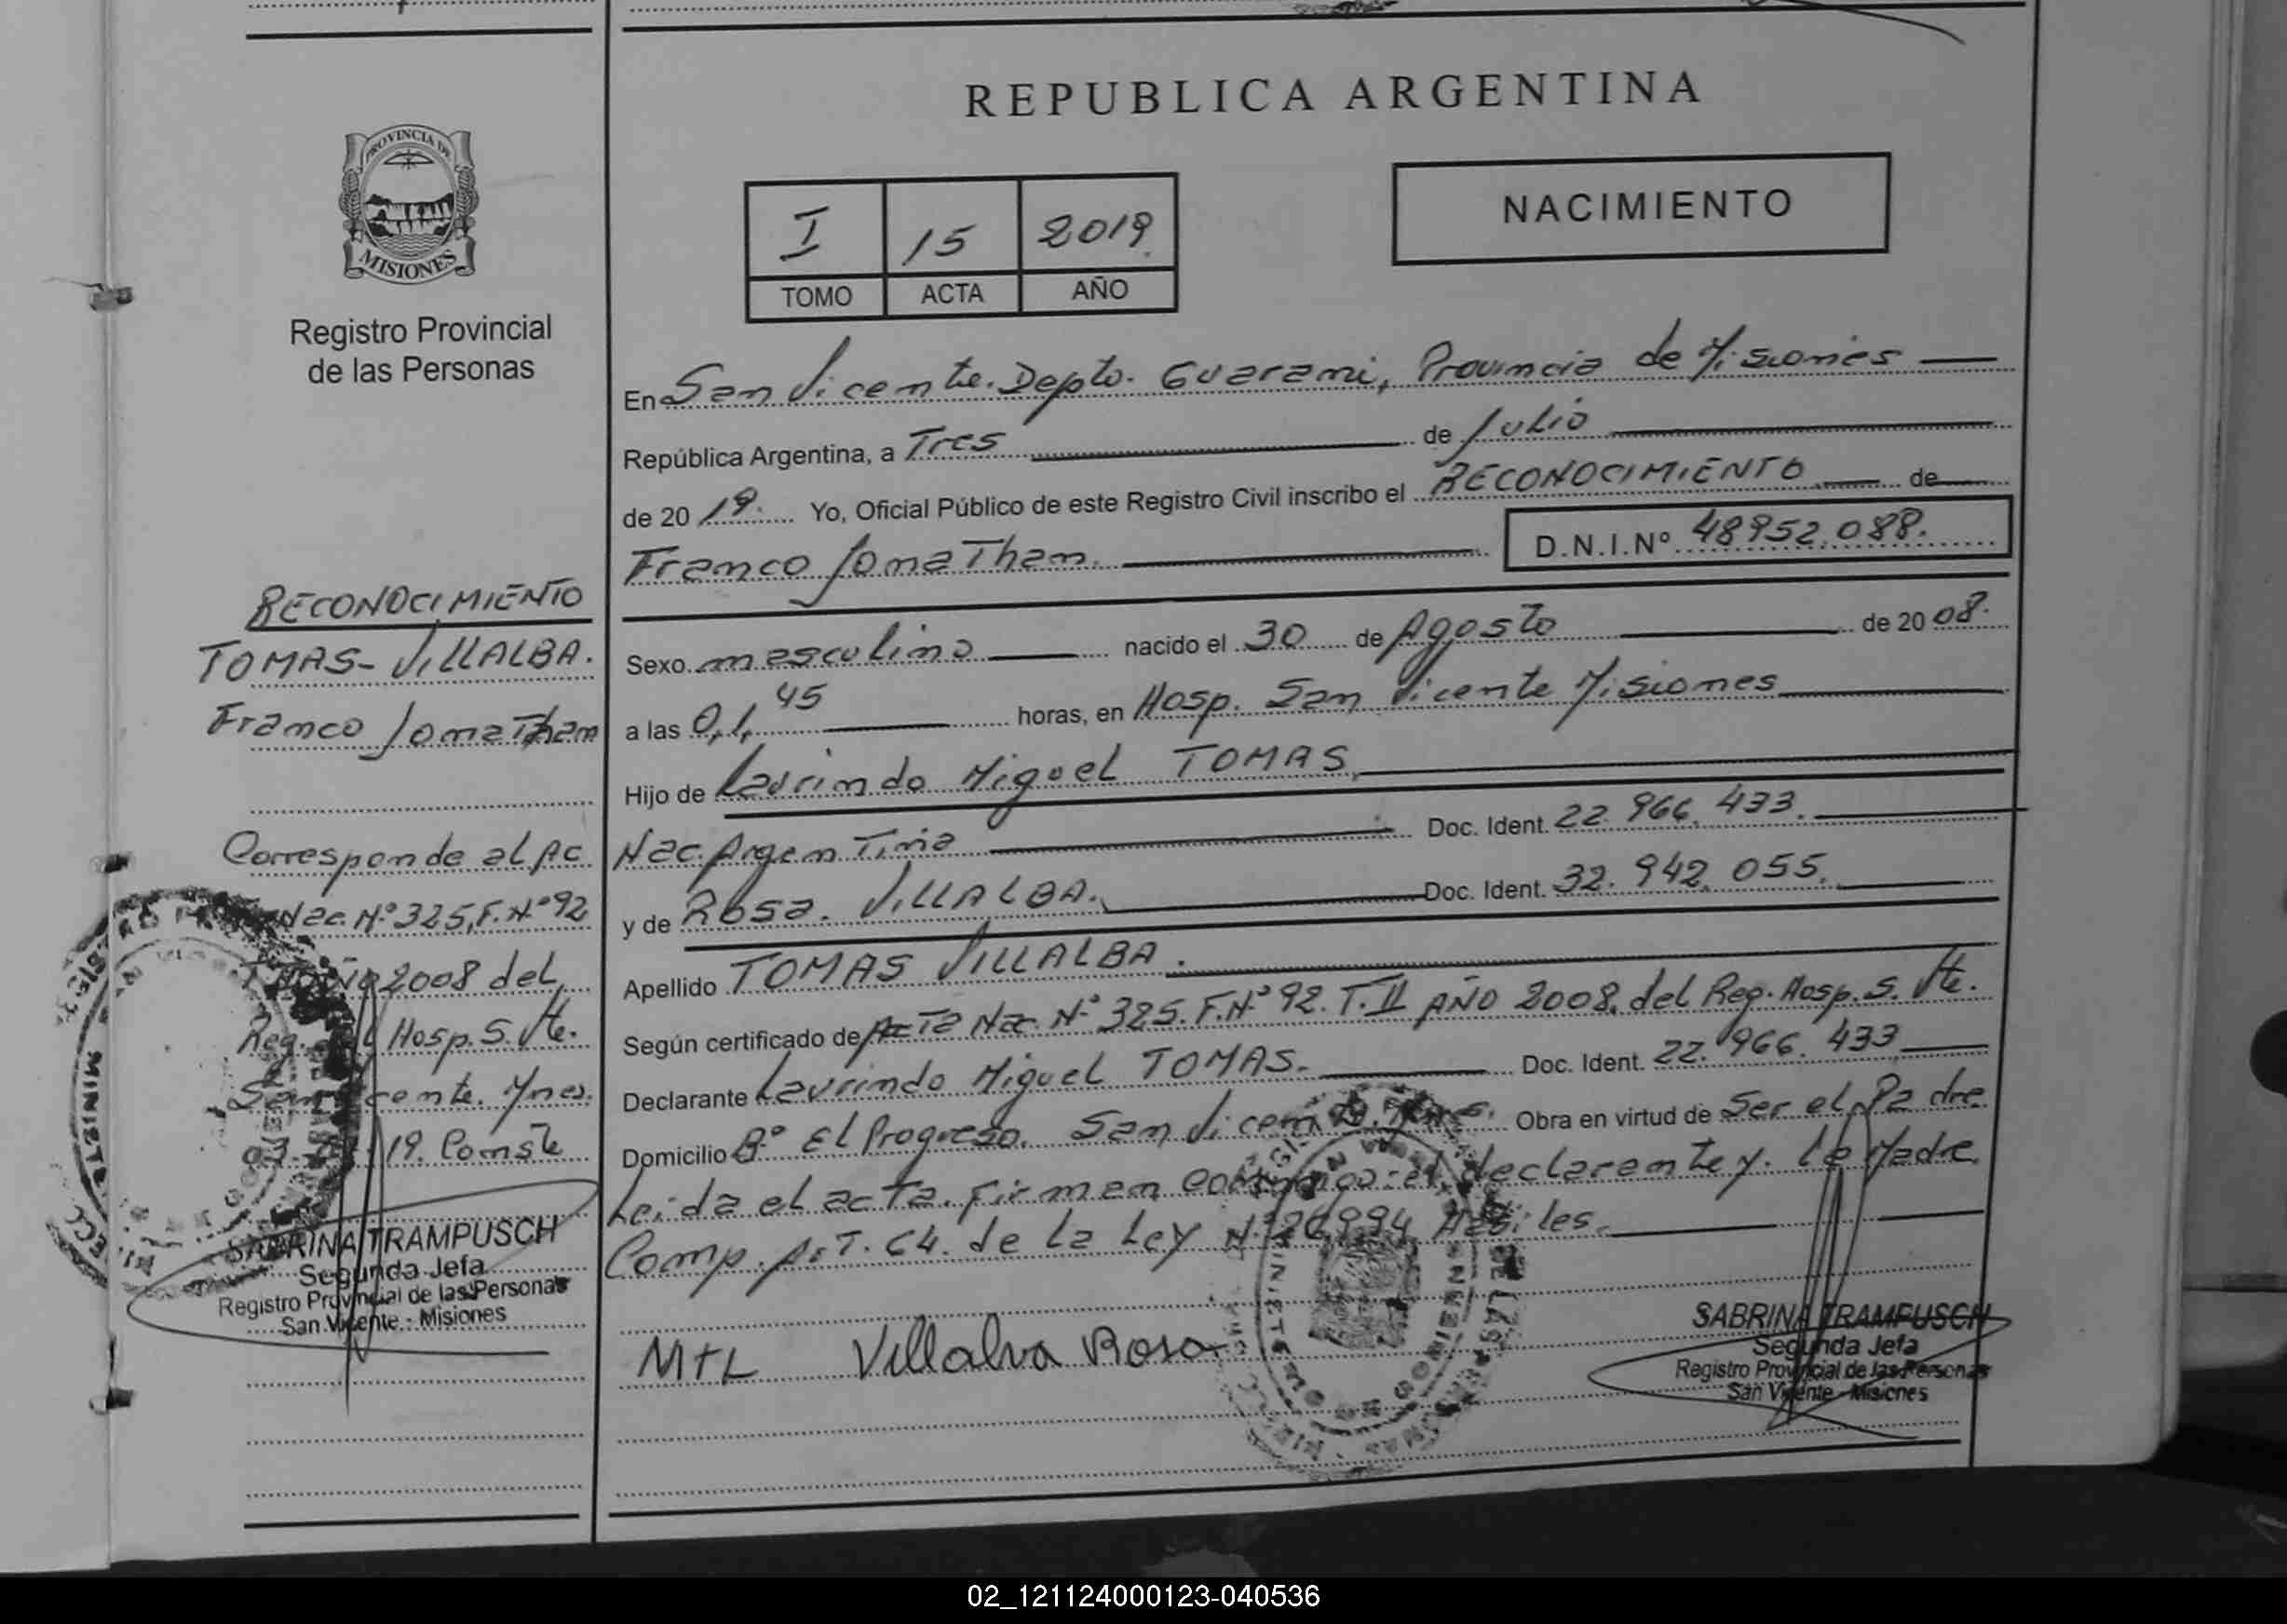 REPUBLICA ARGENTINA
PROVINCIA DE
MISIONES
Registro Provincial
de las Personas
I 15 2019
TOMO ACTA AÑO
NACIMIENTO
En San Vicente. Depto. Guarani, Provincia de Misiones
República Argentina, a Tres de Julio
de 2019. Yo, Oficial Público de este Registro Civil inscribo el RECONOCIMIENTO de
Franco Jonathan. D.N.I.Nº 48952.088.
Sexo masculino nacido el 30 de Agosto de 2008.
a las 01,45 horas, en Hosp. San Vicente Misiones
Hijo de Laurindo Miguel TOMAS
Nac. Argentina Doc. Ident. 22.966.433.
y de Rosa. VILLALBA. Doc. Ident. 32.942.055.
Apellido TOMAS VILLALBA.
Según certificado de Acta Nac. Nº 325. F.Nº 92. T.II AÑO 2008. del Reg. Hosp. S. Vte.
Declarante Laurindo Miguel TOMAS. Doc. Ident. 22.966.433
Domicilio Bº El Progreso. San Vicente. Mnes. Obra en virtud de Ser el Padre
Leida el acta. Firman conmigo: el declarante y. la Madre.
Comp. Art. 64. de la Ley Nº 26994 Habiles.
MTL Villalva Rosa
SABRINA TRAMPUSCH
Segunda Jefa
Registro Provincial de las Personas
San Vicente - Misiones
RECONOCIMIENTO
TOMAS - VILLALBA.
Franco Jonathan
Corresponde al Ac
Nac. Nº 325, F. Nº 92
2008 del
Reg. Hosp. S. Vte.
San Vicente. Mnes.
19. Conste
SABRINA TRAMPUSCH
Segunda Jefa
Registro Provincial de las Personas
San Vicente - Misiones
02_121124000123-040536